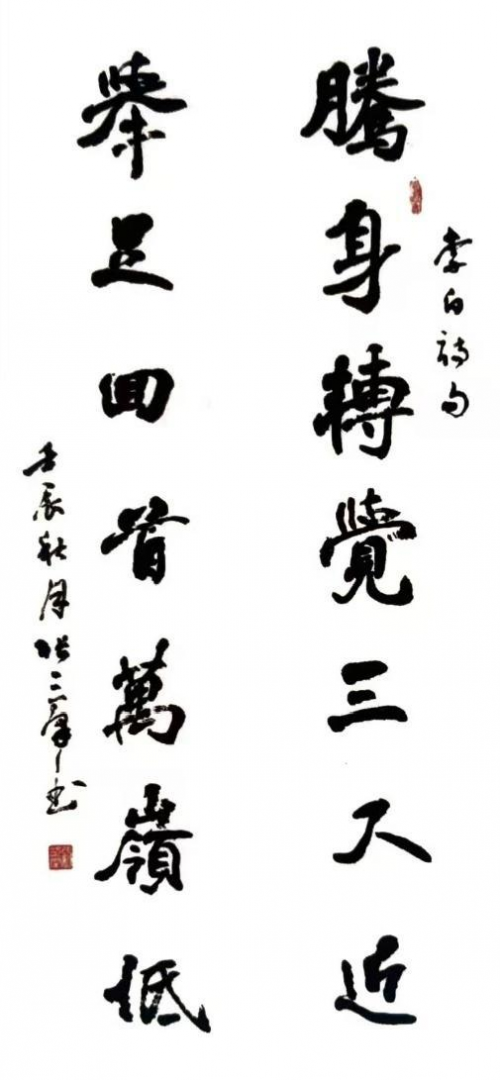 李白詩句
騰身轉覺三天近
舉足回看萬嶺低
壬辰秋月張三书